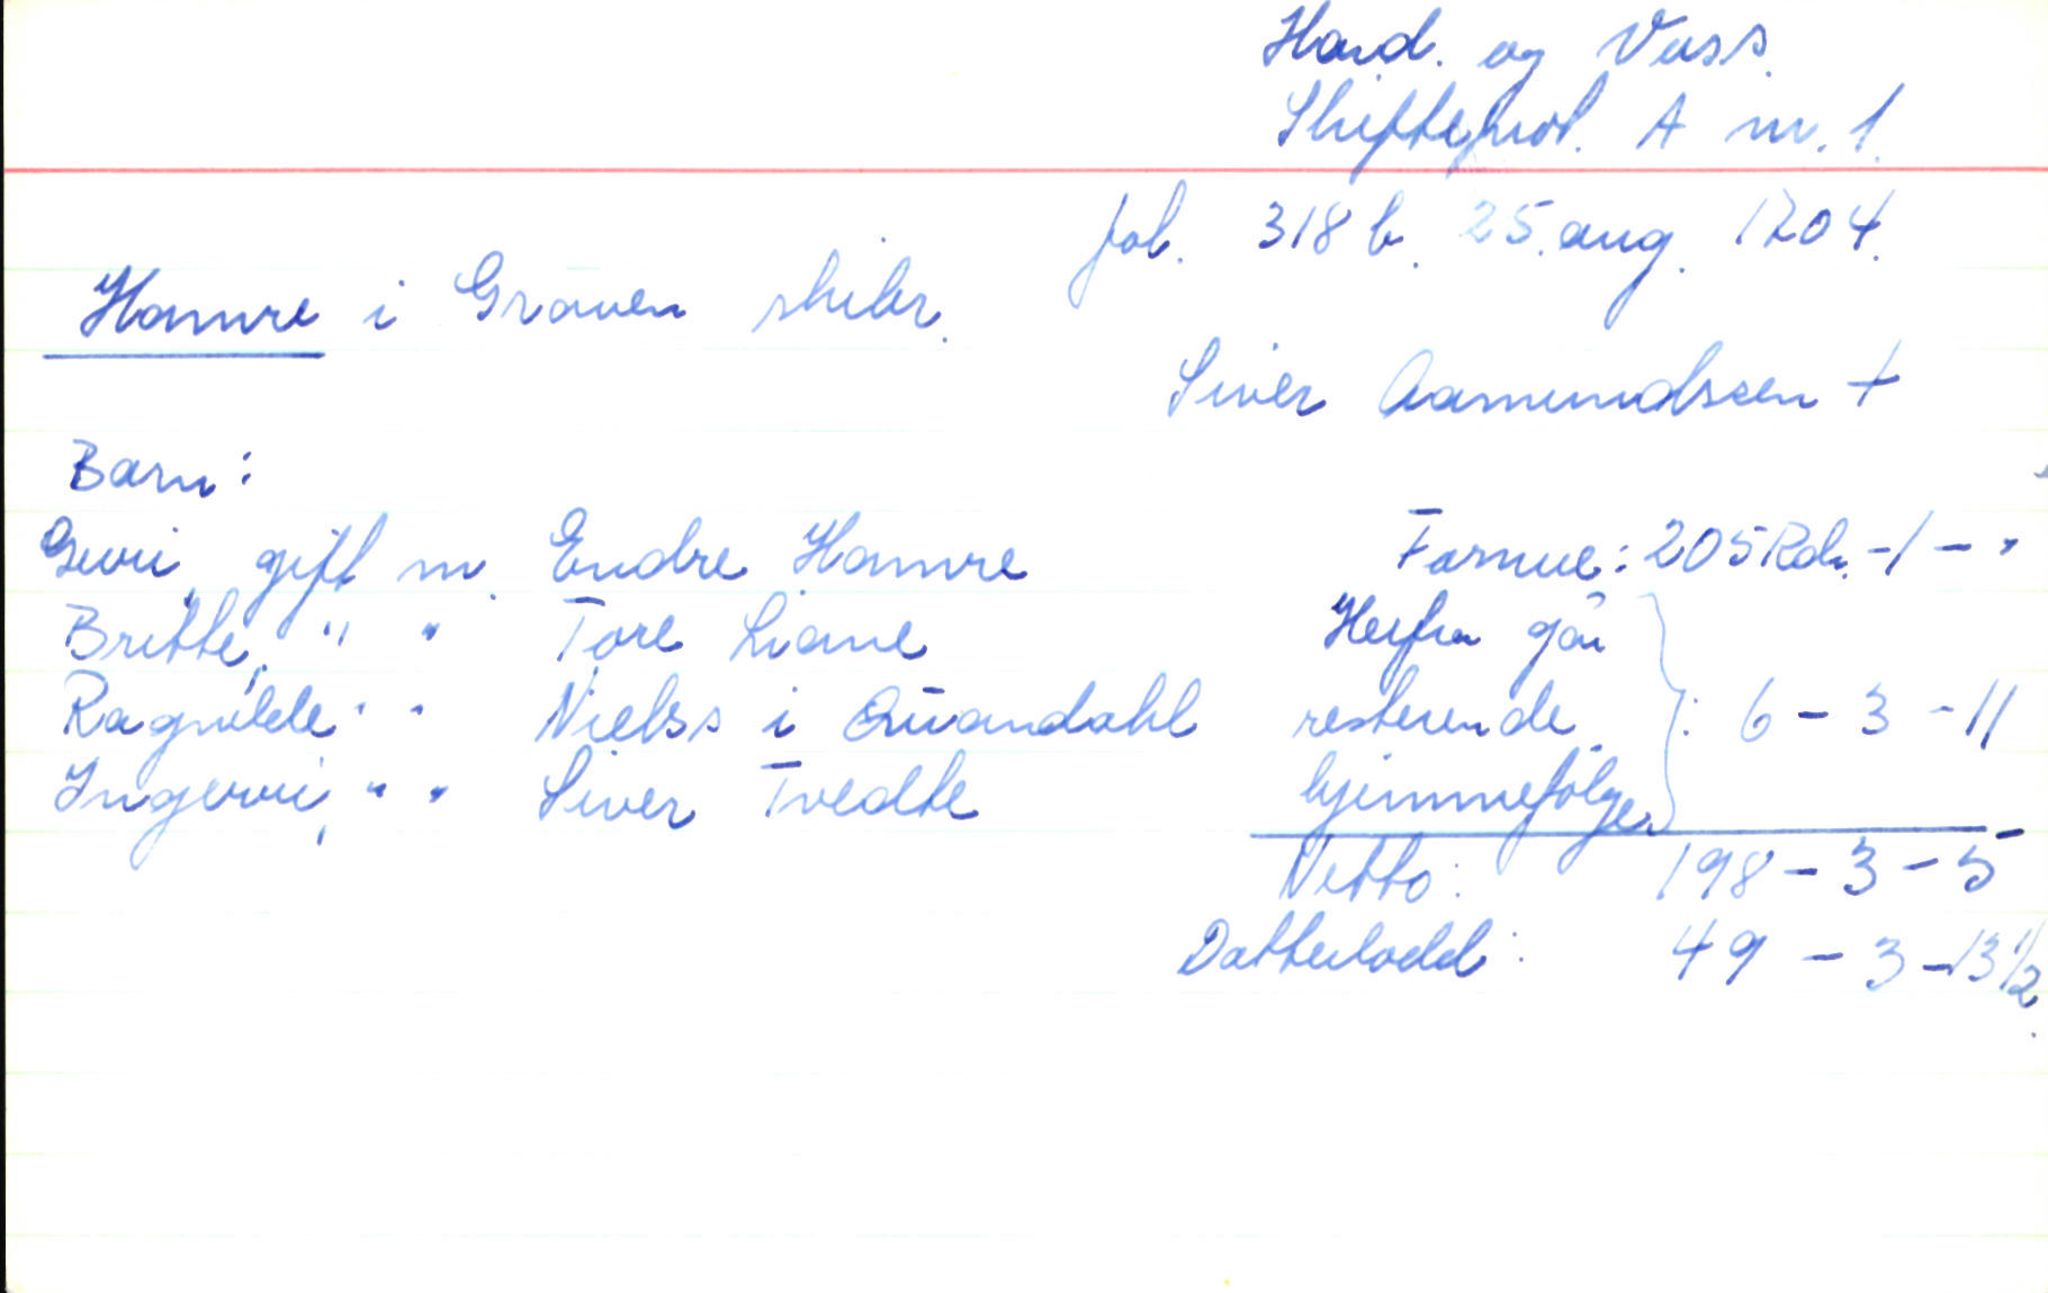 Hard. og Voss.
Skifteprot. A nr. 1.
fol. 318 b. 25. aug. 1704.
Hamre i Graven skibr.
Siver Aamundssen +
Barn:
Guri, gift m. Endre Hamre
Britte, " " Tore Liane
Ragnilde " " Nielss i Quandahl
Ingerui, " " Siver Tvedte
Formue: 205 Rdr. - 1 - "
Herfra går
restende : 6 - 3 - 11
hjemmefølger
Netto: 198 - 3 - 5
Datterlodd: 49 - 3 - 13 1/2.